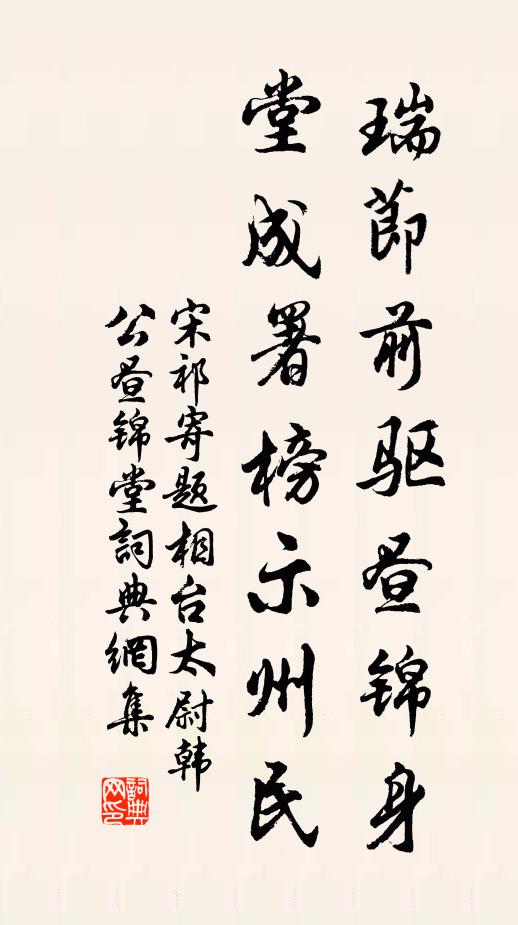 瑞節前驱昼锦身
堂成署榜示州民
宋祁寄题相台太尉韩
公昼锦堂詞典網集
詞典
网印